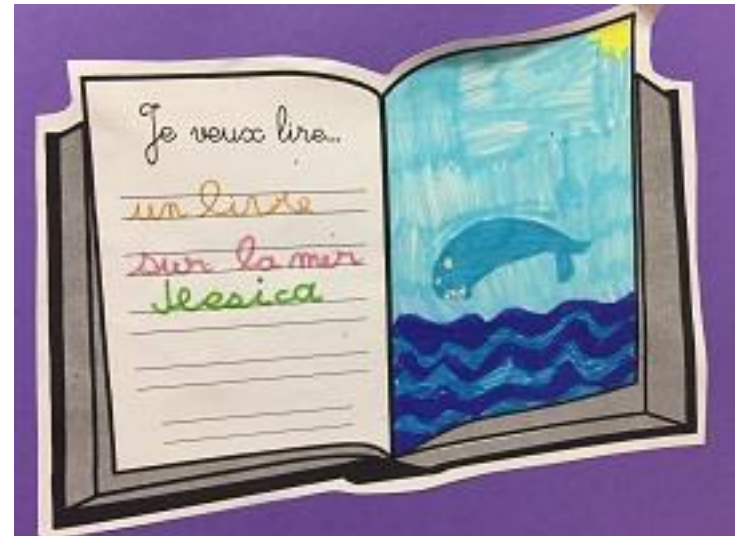 Je veux lire...
un livre
sur la mer
Jessica